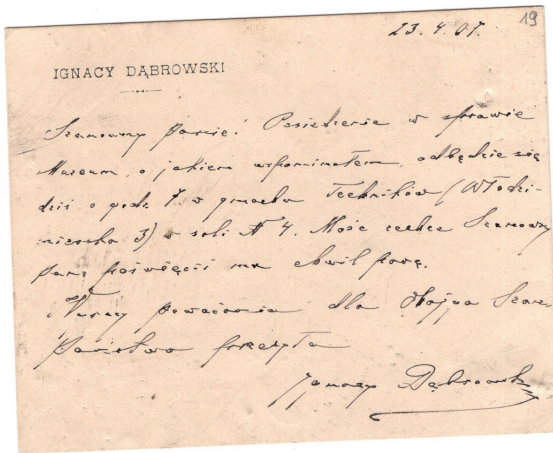 19
23. 4. 07.
IGNACY DĄBROWSKI
Szanowny Panie! Posiedzenie w sprawie
Museum, o jakiem wspominałem, odbędzie się
dziś o godz 7. w gmachu Techników (Włodzi-
mierska 3) w sali № 4. Może zechce Szanowny
Pan poświęcić mu chwil parę.
Wyrazy poważania dla Szan
Państwa przesyła
Ignacy Dąbrowski